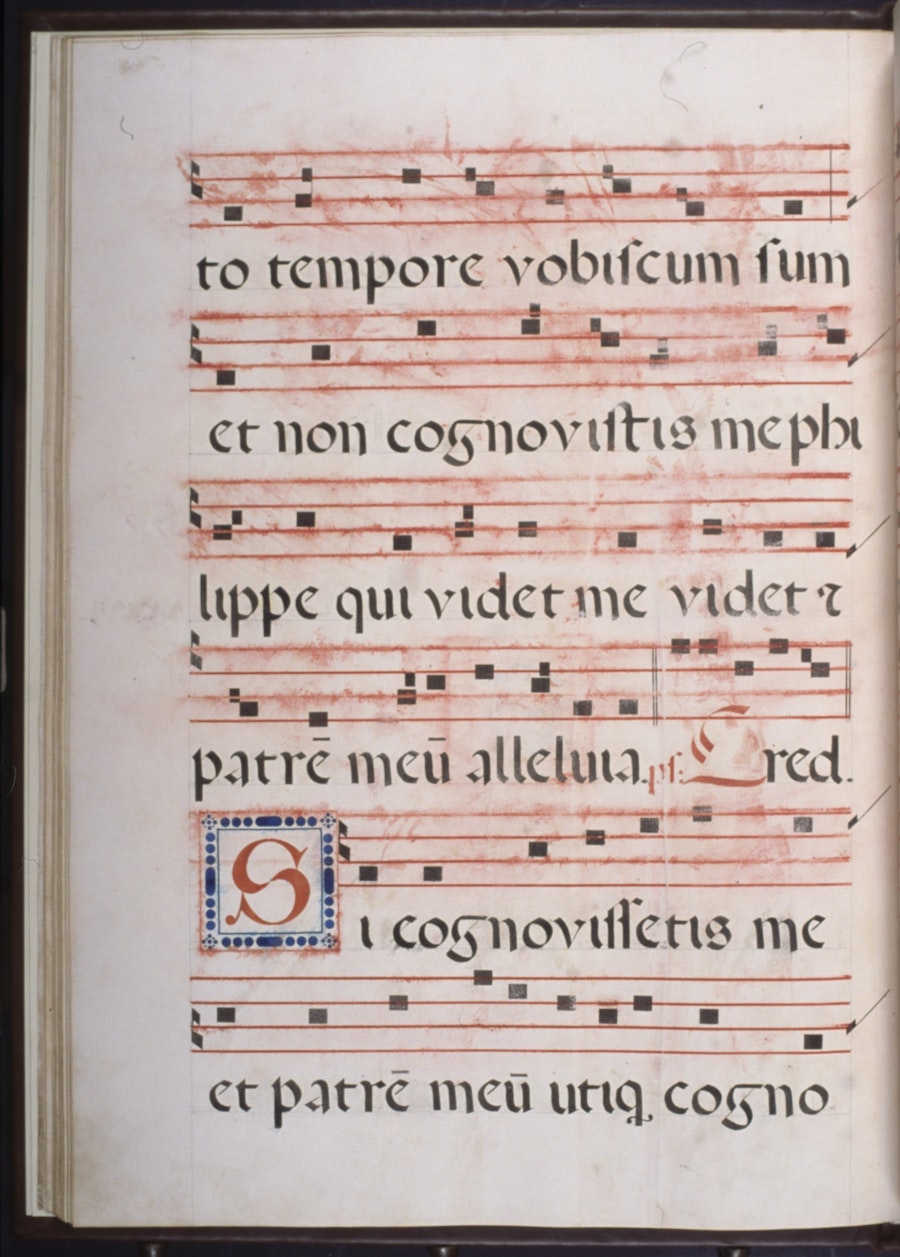 to tempore vobiſcum ſum
et non cognoviſtis me phi
lippe qui videt me videt ⁊
patrē meū alleluia. pſ: Cred.
Si cognoviſſetis me
et patrē meū utiq̨ cogno